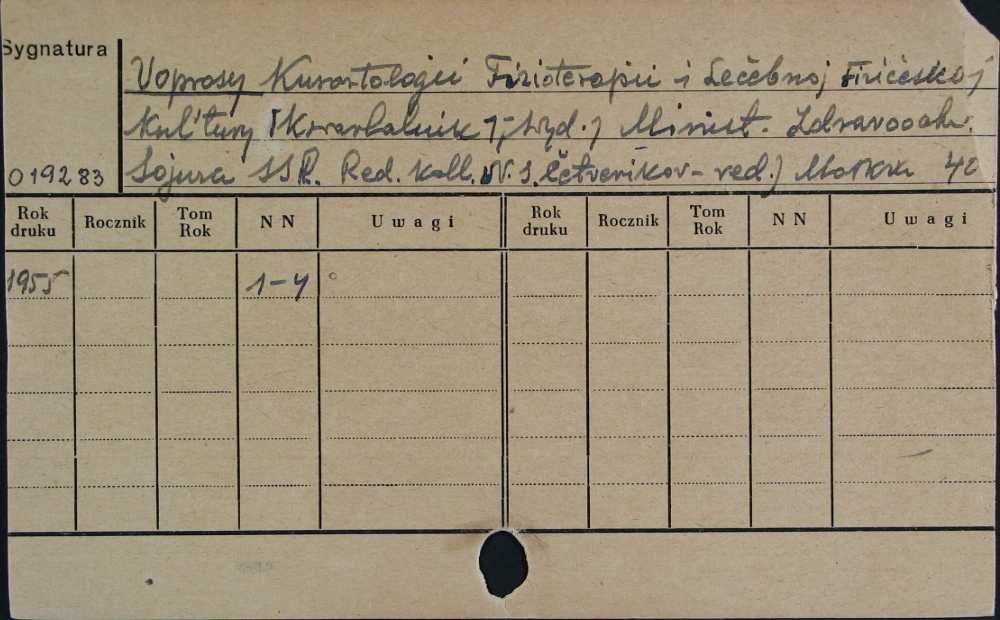 Sygnatura
Voprosy Kurortologii Fizioterapii i Lečebnoj Fizičeskoj
Kul'tury (Kwartalnik Wyd.) Minist. Zdravoochr.
019283 Sojuza SSR. Red. koll. N. S. Četverikov - red.) Moskva 40
Rok druku Rocznik Tom Rok N N Uwagi Rok druku Rocznik Tom Rok N N Uwagi
1955 1-4